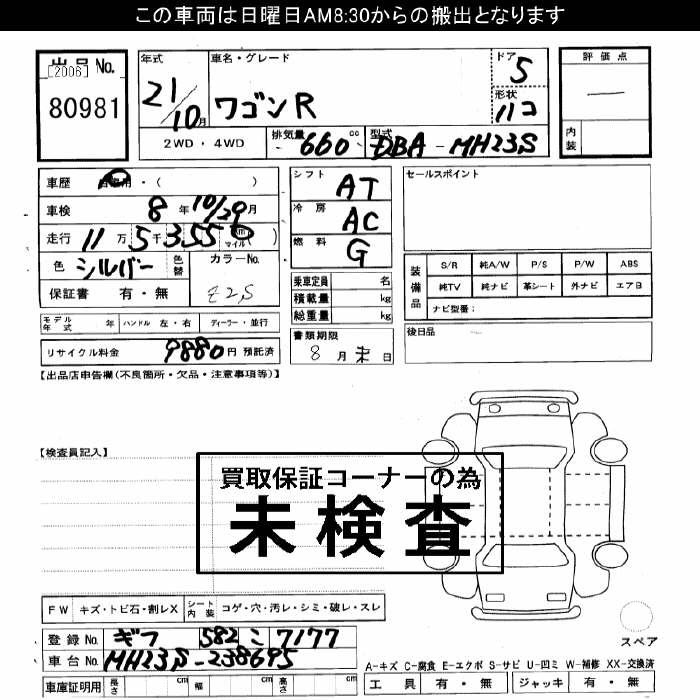 この車両は日曜日AM8:30からの搬出となります
出品No.
[2006]
80981
年式
21/10月
車名・グレード
ワゴンR
ドア
5
形状
ハコ
評価点
内装
2WD・4WD
排気量 660 cc
型式 DBA-MH23S
車歴 自家用・( )
車検 8年10/29月
走行 11万5千355 km マイル( )
色 シルバー
色替
カラーNo.
Z2S
保証書 有・無
シフト AT
冷房 AC
燃料 G
乗車定員 名
積載量 kg
総重量 kg
セールスポイント
装備品
S/R 純A/W P/S P/W ABS
純TV 純ナビ 革シート 外ナビ エアB
ナビ型番:
モデル年式 年 ハンドル 左・右 ディーラー・並行
リサイクル料金 9880円 預託済
書類期限
8月末日
後日品
【出品店申告欄(不良箇所・欠品・注意事項等)】
【検査員記入】
買取保証コーナーの為
未検査
FW キズ・トビ石・割レX シート内装 コゲ・穴・汚レ・シミ・破レ・スレ
登録No. ギフ 582 こ 7177
車台No. MH23S-238695
車庫証明用 長さ cm 幅 cm 高さ cm
スペア
A-キズ C-腐食 E-エクボ S-サビ U-凹ミ W-補修 XX-交換済
工具 有・無 ジャッキ 有・無